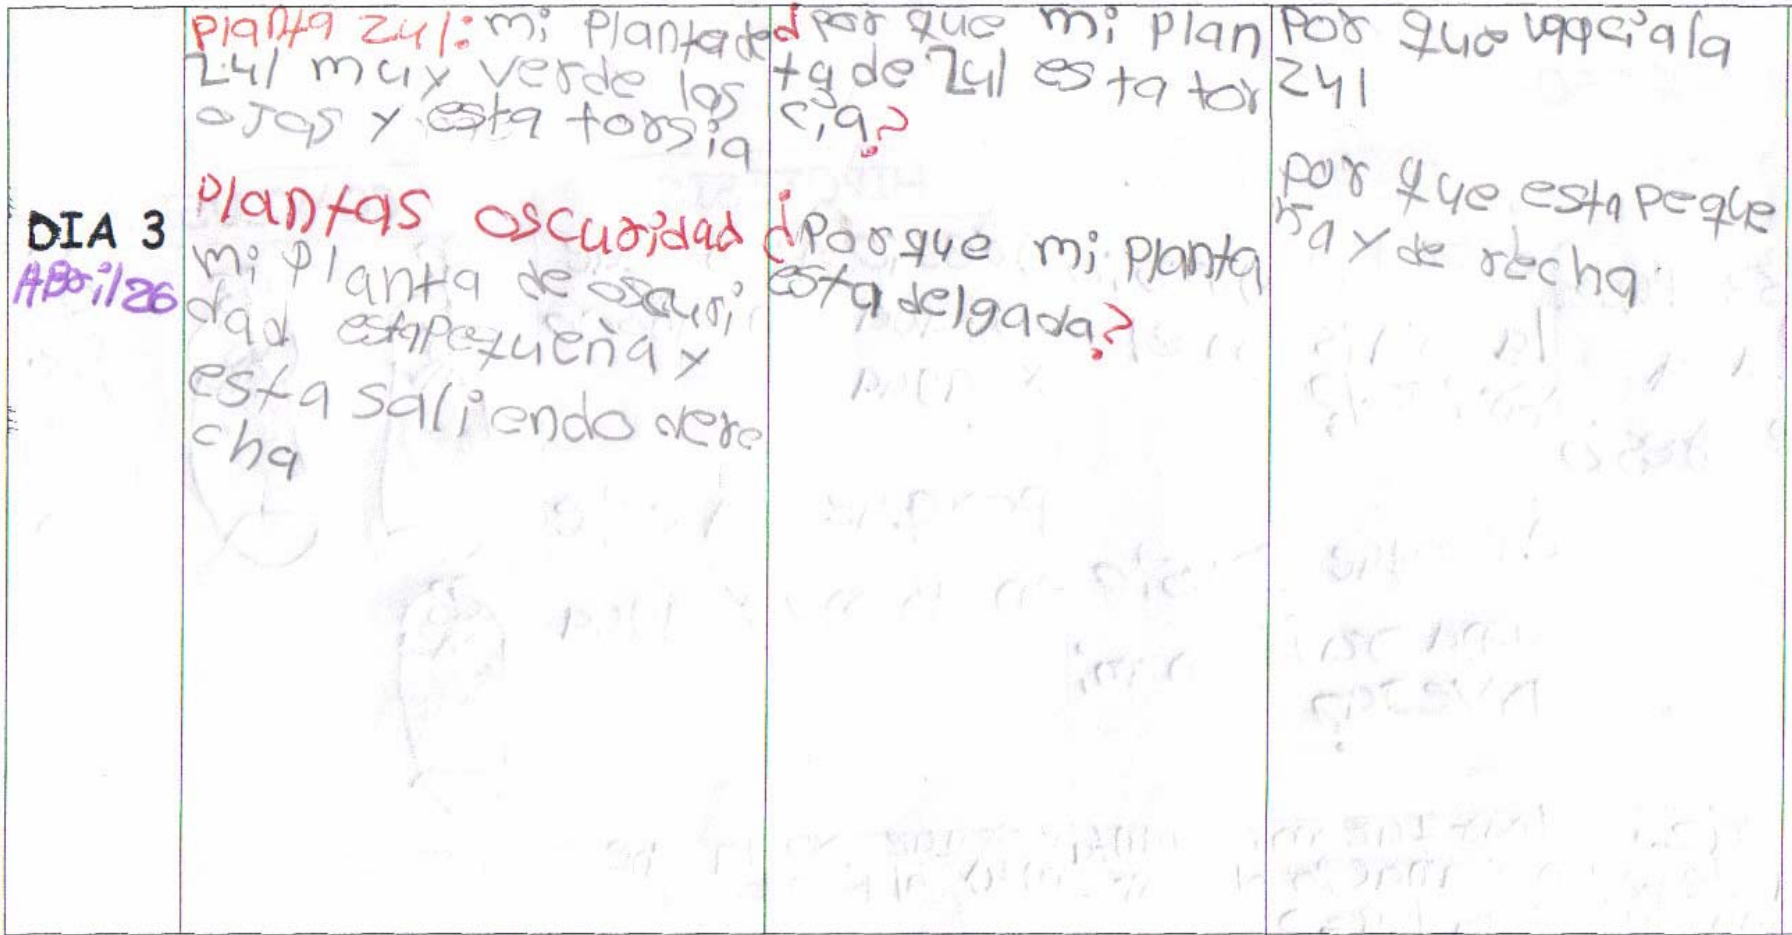 DIA 3
ABril 26
Planta zul: mi Plantade
zul muy verde las
ojas y esta torsia
Plantas oscuridad
mi Planta de oscuri
dad estapequeña y
esta saliendo dere
cha
¿por que mi plan
ta de zul esta tor
cia?
¿Porque mi planta
esta delgada?
por que
zul
por que esta peque
ña y de recha